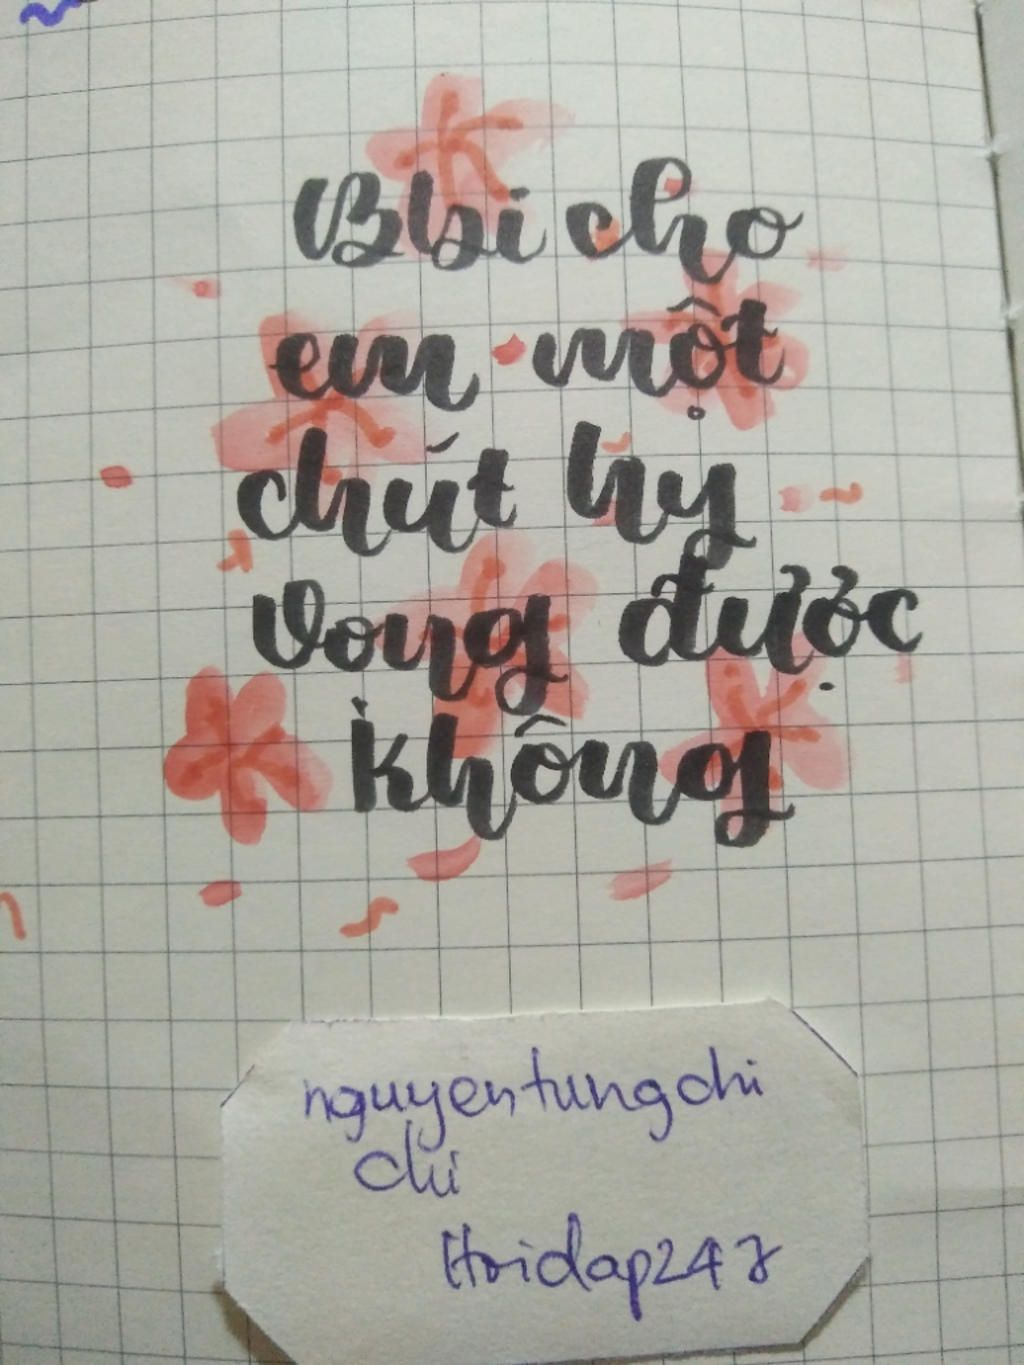 Bbi cho
em một
chút hy
vong được
không
nguyentungchi
chi
Hoidap247